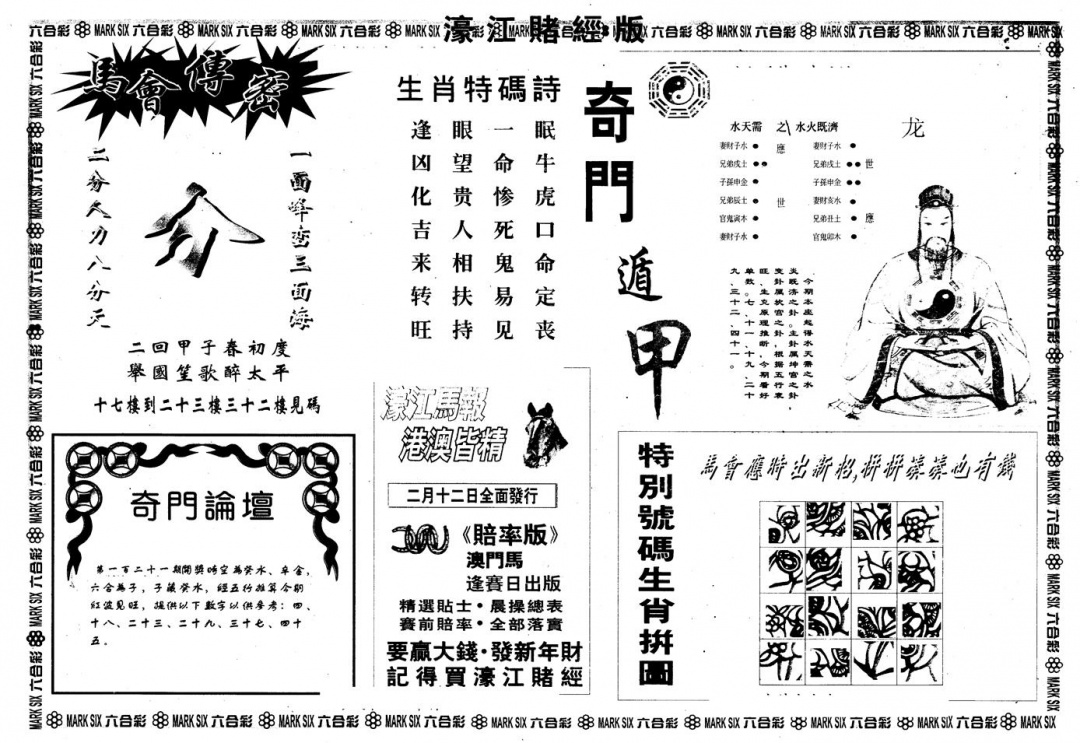 濠江賭經版
六合彩 MARK SIX 六合彩 MARK SIX 六合彩 MARK SIX 六合彩 MARK SIX
馬會傳密
一面峰巒三面海
二分人力八分天
二回甲子春初度
舉國笙歌醉太平
十七樓到二十三樓三十二樓見碼
生肖特碼詩
眠牛虎口命定丧
一命惨死鬼易见
眼望贵人相扶持
逢凶化吉来转旺
奇門遁甲
水天需 之 水火既濟
龙
妻財子水
兄弟戌土
子孫申金
兄弟辰土
官鬼寅木
妻財子水
應
世
妻財子水
兄弟戌土
子孫申金
妻財亥水
兄弟丑土
官鬼卯木
世
應
今期本座起得水天需之水
火既济之卦。主卦属坤宫之卦,
变卦属坎宫之卦,根据五行衰
旺、生克原理推断,今期看好
单数:七、十一、十九、二十
九、三十二、四十一。
奇門論壇
第一百二十一期開獎時空為癸水、辛金,
六合為子,子藏癸水,經五行推算今期
紅波见旺,提供以下數字以供參考:四、
十八、二十三、二十九、三十七、四十
五。
濠江馬報
港澳皆精
二月十二日全面發行
《賠率版》
澳門馬
逢賽日出版
精選貼士·晨操總表
賽前賠率·全部落實
要贏大錢·發新年財
記得買濠江賭經
特別號碼生肖拼圖
馬會應時出新招,拼拼湊湊也有錢